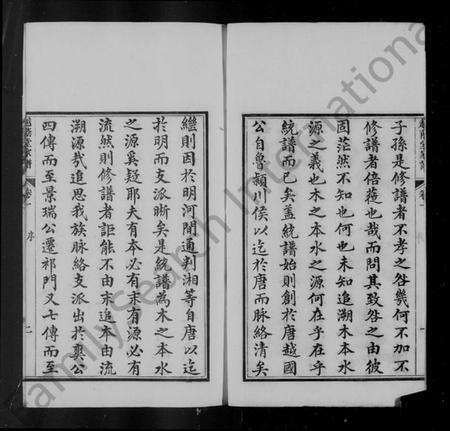 子孫是修譜者不孝之咎幾何不加不
修譜者倍蓰也哉而問其致咎之由彼
固茫然不知也何也未知追溯木本水
源之義也木之本水之源何在乎在乎
統譜而已矣蓋統譜始則創於唐越國
公自魯頴川侯以迄於唐而脉絡清矣
繼則因於明河間通判湘等自唐以迄
於明而支派晰矣是統譜為木之本水
之源奚疑耶夫有本必有末有源必有
流然則修譜者詎能不由末追本由流
溯源哉追思我族脉絡支派出於奠公
四傳而至景瑞公遷祁門又七傳而至
卷一
序
二
FamilySearch International